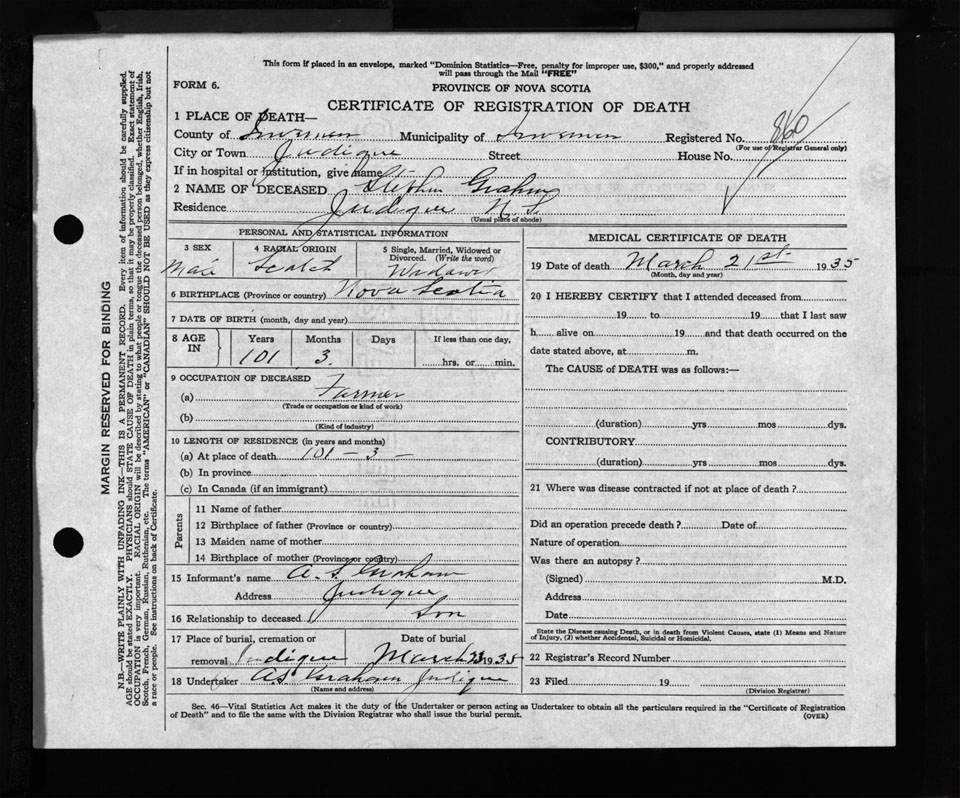 This form if placed in an envelope, marked "Dominion Statistics—Free, penalty for improper use, $300," and properly addressed
will pass through the Mail "FREE"
FORM 6.
PROVINCE OF NOVA SCOTIA
CERTIFICATE OF REGISTRATION OF DEATH
1 PLACE OF DEATH—
County of Inverness Municipality of Inverness Registered No. 860
(For use of Registrar General only)
City or Town Judique Street House No.
If in hospital or institution, give name
2 NAME OF DECEASED Stephen Graham
Residence Judique N.S.
(Usual place of abode)
PERSONAL AND STATISTICAL INFORMATION
3 SEX 4 RACIAL ORIGIN 5 Single, Married, Widowed or
Divorced. (Write the word)
Male Scotch Widower
6 BIRTHPLACE (Province or country) Nova Scotia
7 DATE OF BIRTH (month, day and year)
8 AGE IN Years Months Days If less than one day,
101 3 hrs. or min.
9 OCCUPATION OF DECEASED
(a) Farmer
(Trade or occupation or kind of work)
(b)
(Kind of industry)
10 LENGTH OF RESIDENCE (in years and months)
(a) At place of death 101 – 3 –
(b) In province
(c) In Canada (if an immigrant)
Parents
11 Name of father
12 Birthplace of father (Province or country)
13 Maiden name of mother
14 Birthplace of mother (Province or country)
15 Informant's name A. S. Graham
Address Judique
16 Relationship to deceased Son
17 Place of burial, cremation or Date of burial
removal Judique March 23 1935
18 Undertaker AS Graham Judique
(Name and address)
MEDICAL CERTIFICATE OF DEATH
19 Date of death March 21st 1935
(Month, day and year)
20 I HEREBY CERTIFY that I attended deceased from
19 to 19 that I last saw
h alive on 19 and that death occurred on the
date stated above, at m.
The CAUSE of DEATH was as follows:—
(duration) yrs mos dys.
CONTRIBUTORY
(duration) yrs mos dys.
21 Where was disease contracted if not at place of death?
Did an operation precede death? Date of
Nature of operation
Was there an autopsy?
(Signed) M.D.
Address
Date
State the Disease causing Death, or in death from Violent Causes, state (1) Means and Nature
of Injury, (2) whether Accidental, Suicidal or Homicidal.
22 Registrar's Record Number
23 Filed 19
(Division Registrar)
Sec. 46—Vital Statistics Act makes it the duty of the Undertaker or person acting as Undertaker to obtain all the particulars required in the "Certificate of Registration
of Death" and to file the same with the Division Registrar who shall issue the burial permit. (OVER)
MARGIN RESERVED FOR BINDING
N.B.—WRITE PLAINLY WITH UNFADING INK—THIS IS A PERMANENT RECORD. Every item of information should be carefully supplied.
AGE should be stated EXACTLY. PHYSICIANS should STATE CAUSE OF DEATH in plain terms, so that it may be properly classified. Exact statement of
OCCUPATION is very important. RACIAL ORIGIN will be described by stating to what people or tongue the deceased person belonged, whether English, Irish,
Scotch, French, German, Russian, Ruthenian, etc. The terms "AMERICAN" or "CANADIAN" SHOULD NOT BE USED as they express citizenship but not
a race or people. See instructions on back of Certificate.